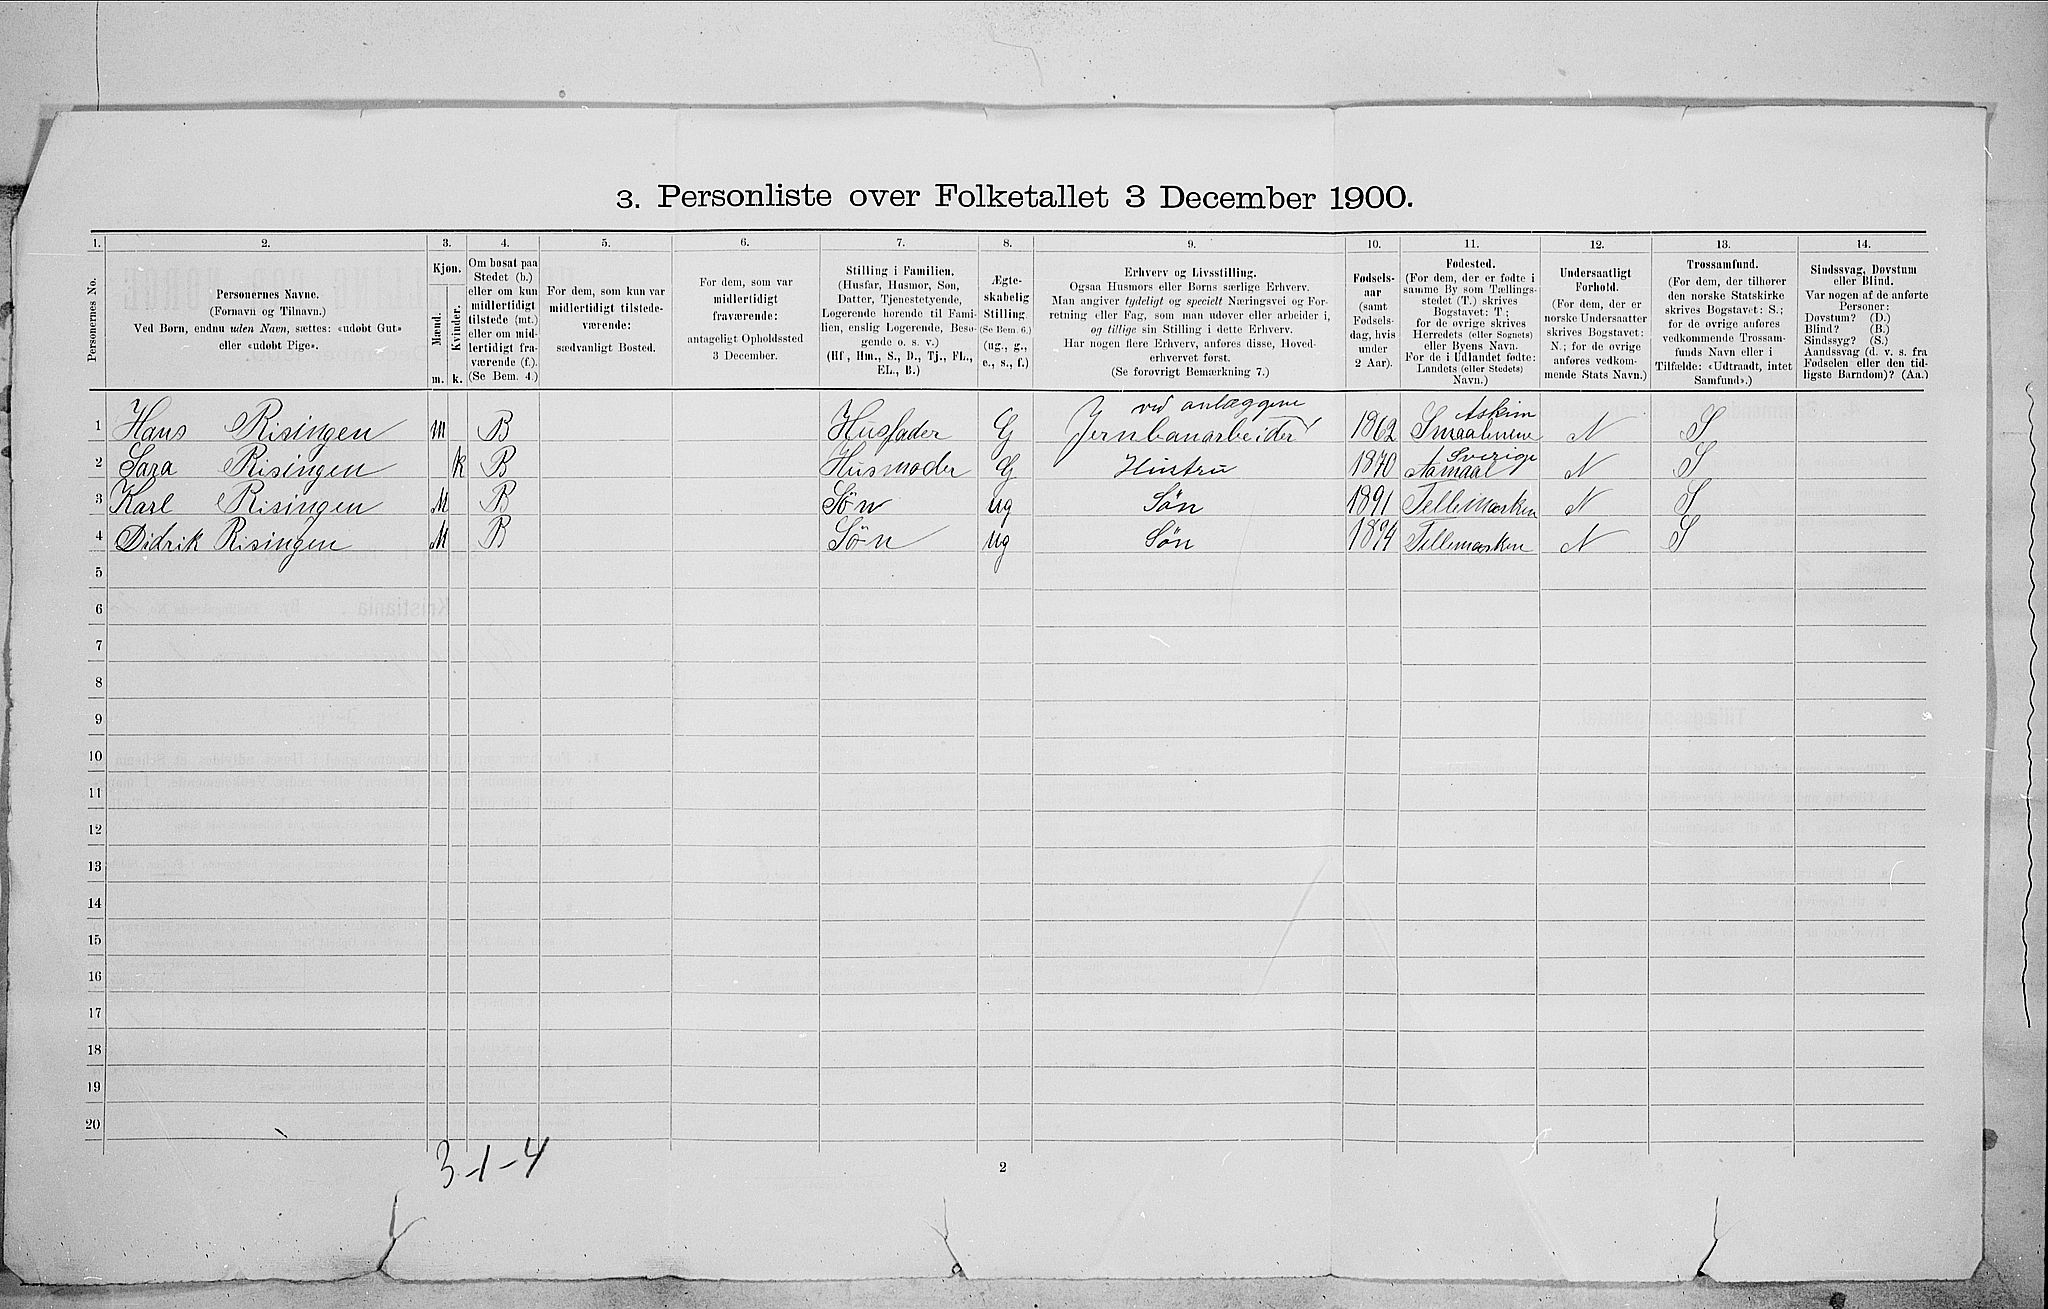 3. Personliste over Folketallet 3 December 1900.
1. 2. 3. 4. 5. 6. 7. 8. 9. 10. 11. 12. 13. 14.
Personernes No.
Personernes Navne.
(Fornavn og Tilnavn.)
Ved Børn, endnu uden Navn, sættes: «udøbt Gut»
eller «udøbt Pige».
Kjøn.
Mænd.
Kvinder.
m. k.
Om bosat paa
Stedet (b.)
eller om kun
midlertidigt
tilstede (mt.)
eller om mid-
lertidigt fra-
værende (f.).
(Se Bem. 4.)
For dem, som kun var
midlertidigt tilstede-
værende:
sædvanligt Bosted.
For dem, som var
midlertidigt
fraværende:
antageligt Opholdssted
3 December.
Stilling i Familien.
(Husfar, Husmor, Søn,
Datter, Tjenestetyende,
Logerende hørende til Fami-
lien, enslig Logerende, Besø-
gende o. s. v.)
(Hf., Hm., S., D., Tj., FL.,
EL., B.)
Ægte-
skabelig
Stilling.
(Se Bem. 6.)
(ug., g.,
e., s., f.)
Erhverv og Livsstilling.
Ogsaa Husmors eller Børns særlige Erhverv.
Man angiver tydeligt og specielt Næringsvei og For-
retning eller Fag, som man udøver eller arbeider i,
og tillige sin Stilling i dette Erhverv.
Har nogen flere Erhverv, anføres disse, Hoved-
erhvervet først.
(Se forøvrigt Bemærkning 7.)
Fødsels-
aar
(samt
Fødsels-
dag, hvis
under
2 Aar).
Fødested.
(For dem, der er fødte i
samme By som Tællings-
stedet (T.) skrives
Bogstavet: T;
for de øvrige skrives
Herredets (eller Sognets)
eller Byens Navn.
For de i Udlandet fødte:
Landets (eller Stedets)
Navn.)
Undersaatligt
Forhold.
(For dem, der er
norske Undersaatter
skrives Bogstavet:
N.; for de øvrige
anføres vedkom-
mende Stats Navn.)
Trossamfund.
(For dem, der tilhører
den norske Statskirke
skrives Bogstavet: S.;
for de øvrige anføres
vedkommende Trossam-
funds Navn eller i
Tilfælde: «Udtraadt, intet
Samfund».)
Sindssvag, Døvstum
eller Blind.
Var nogen af de anførte
Personer:
Døvstum? (D.)
Blind? (B.)
Sindssyg? (S.)
Aandssvag (d. v. s. fra
Fødselen eller den tid-
ligste Barndom)? (Aa.)
ved anlæggene Askim
1 Hans Risingen m B Husfader G Jernbanarbeider 1862 Smaalenene N S
Sverige
2 Sara Risingen k B Husmoder G Hustru 1870 Aamaal N S
3 Karl Risingen M B Søn ug Søn 1891 Tellemarken N S
4 Didrik Risingen M B Søn ug Søn 1894 Tellemarken N S
5
6
7
8
9
10
11
12
13
14
15
16
17
18
19
20
3-1-4
2